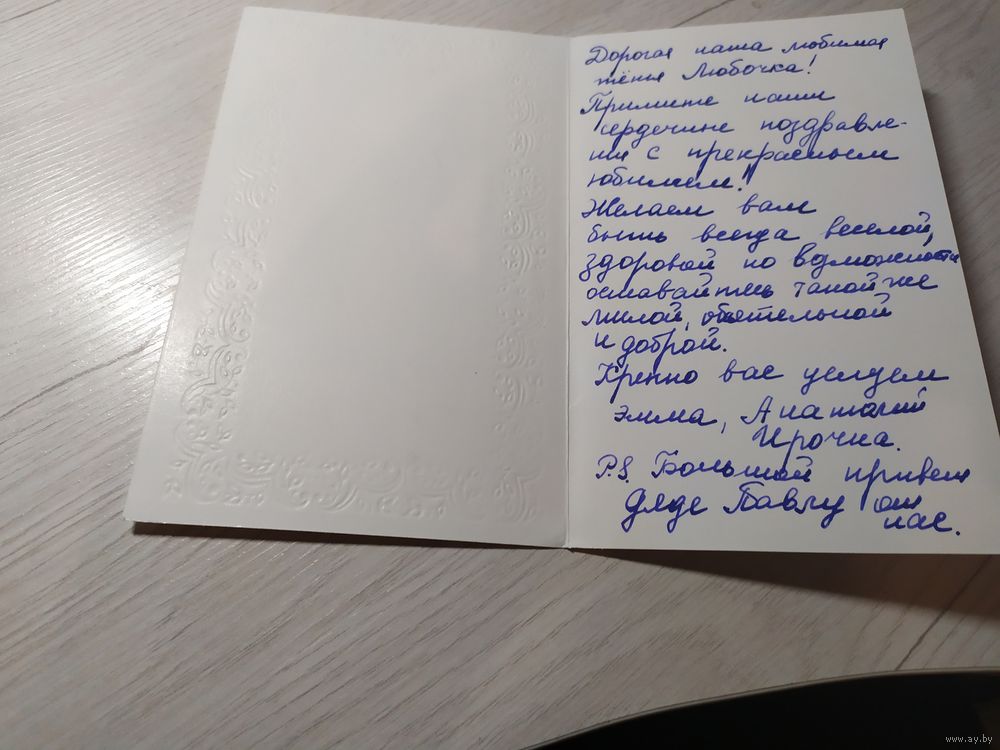 Дорогая наша любимая
тётя Любочка!
Примите наши
сердечные поздравле-
ния с прекрасным
юбилеем!
Желаем вам
быть всегда веселой,
здоровой по возможности
оставайтесь такой же
милой, обаятельной
и доброй.
Крепко вас целуем
Эмма, Анатолий
Ирочка.
P.S. Большой привет
дяде Павлу от
нас.
www.ay.by